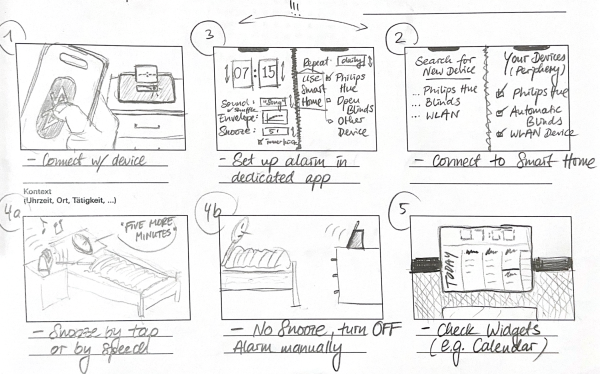 !!!
1
3
2
07:15
Sound: "Song"
shuffle
Envelope:
Snooze: 5'
Repeat: daily
Use Smart Home
Philips Hue
Open Blinds
Other Device
Search for
New Device
... Philips Hue
... Blinds
... WLAN
Your Devices
(Periphery)
Philips Hue
Automatic
Blinds
WLAN Device
- Connect w/ device
- Set up alarm in
dedicated app
- Connect to Smart Home
Kontext
(Uhrzeit, Ort, Tätigkeit, ...)
4a
4b
5
"FIVE MORE
MINUTES"
07:00
TODAY
- Snooze by tap
or by speech
- No Snooze, turn OFF
Alarm manually
- Check Widgets
(e.g. Calendar)